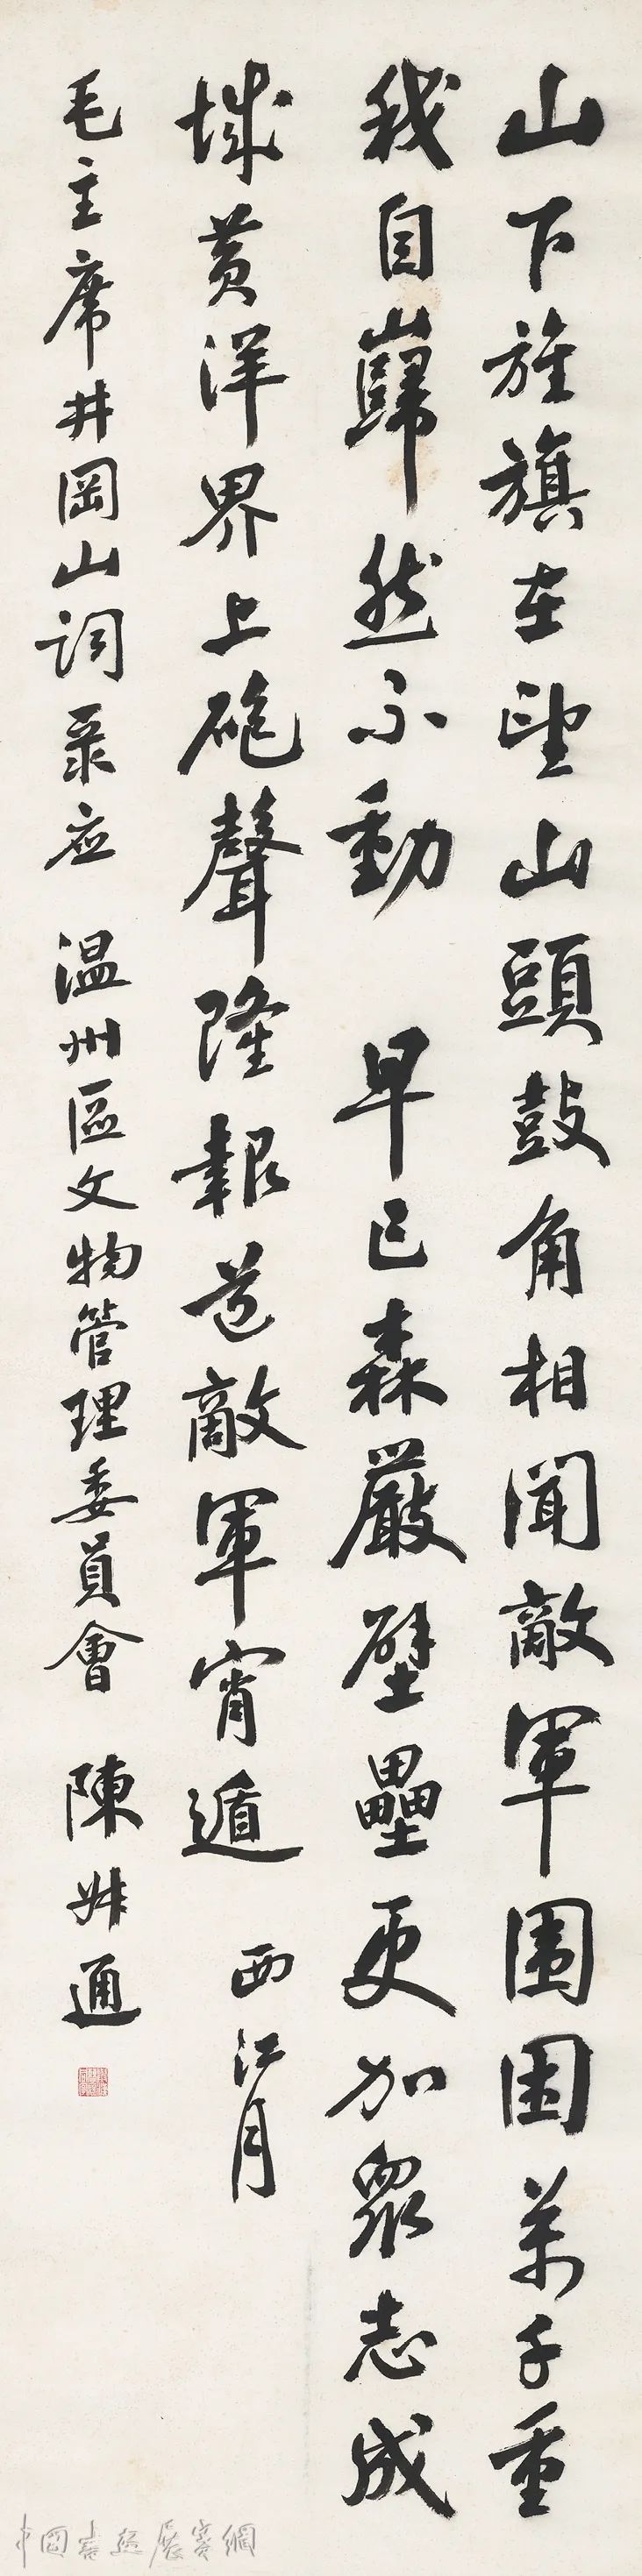 山下旌旗在望山頭鼓角相聞敵軍围困萬千重
我自巋然不動 早已森嚴壁壘更加眾志成
城黄洋界上砲聲隆報道敵軍宵遁 西江月
毛主席井岡山詞录应 温州區文物管理委員會 陳叔通
中國書画展賽網